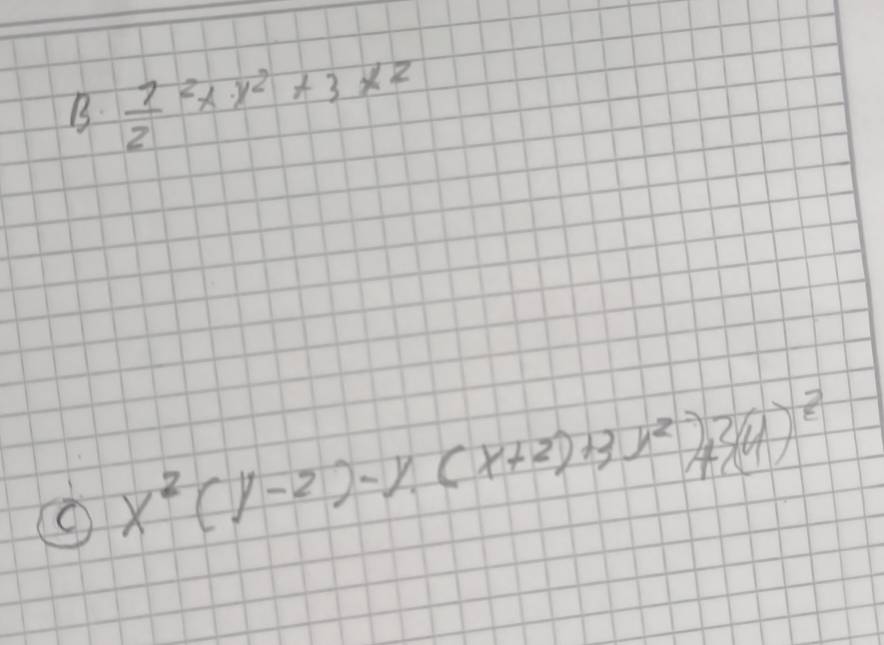 B. 1/2 ²x · y² + 3 x²
C x² (y-2) - y. (x+2)+3 y²)+3(4)²